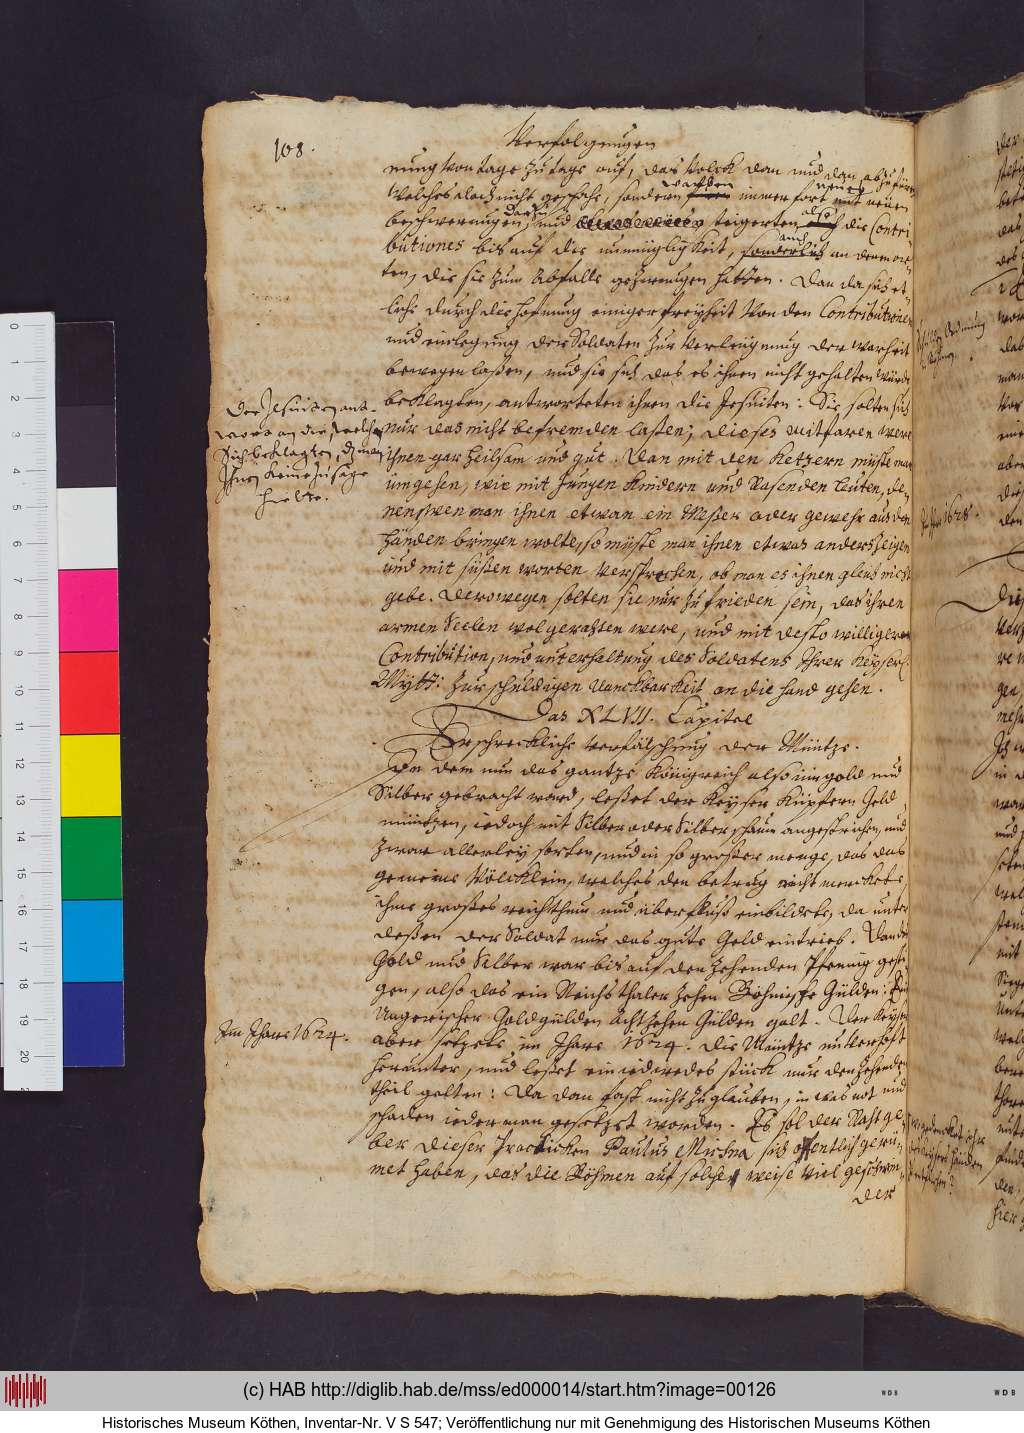 108.
Verfolgungen
nung von tage zu tage auf, das Volck dan und dan abzuführen
Welches doch nicht geschahe, sondern wurden immerfort mit neuen
beschwerungen, und steigerten also die Contri-
butiones bis auf die unmügligkeit, auch an denen or-
ten, die sie zum Abfalle gezwungen hatten. Dan da sich et-
liche durch die hofnung einiger freyheit von den Contributionen
und einlegung der Soldaten zur verleugnung der warheit
bewegen laßen, und sie sich das es ihnen nicht gehalten würde
beklagten, antworteten ihnen die Jesuiten: Sie solten sich
nur das nicht befremden laßen; dieses mitfaren were
ihnen gar heilsam und gut. Dan mit den Ketzern müste man
umgehen, wie mit Jungen Kindern und Rasenden leuten, de-
nen, wen man ihnen etwan ein Meßer oder gewehr aus den
händen bringen wolte, so müste man ihnen etwas anders zeigen
und mit süßen worten versprechen, ob man es ihnen gleich nicht
gebe. Derowegen solten sie nur zu frieden sein, das ihren
armen Seelen wol gerathen were, und mit desto williger
Contribution, und unterhaltung des Soldatens Ihrer Keyserl.
Mytt: zur schuldigen danckbarkeit an die hand gehen.
Der Jesuiten ant-
wort an die, welche
sich beklagten, das man
Ihnen keine zusage
hielte.
Das XLVII. Capitel
Erschreckliche verfälschung der Müntze.
In dem nun das gantze Königreich also üm gold und
Silber gebracht ward, leßet der Keyser Kupfern Geld
müntzen, iedoch mit Silber oder Silberschaum angestrichen, und
zwar allerley sorten, und in so großer menge, das das
gemeine Völcklein, welches den betrug nicht merckete,
ihme großes reichthum und überfluß einbildete, da unter
deßen der Soldat nur das gute Geld eintrieb. Dan das
Gold und Silber war bis auf den zehenden Pfennig gesti-
gen, also das ein Reichsthaler zehen Böhmische Gülden: Ein
Ungerischer Goldgülden achtzehen Gülden galt. Der Keyser
aber setzete im Jhare 1624. die Müntze unverhoft
herunter, und leßet ein iedwedes stück nur den zehenden
theil gelten: Da dan fast nicht zuglauben, in was not und
schaden iederman gesetzet worden. Es sol der Rahtge-
ber dieser Practicken Paulus Michna sich öffentlich gerü-
met haben, das die Böhmen auf solche weise viel geschwin-
der
Im Jhare 1624.
(c) HAB http://diglib.hab.de/mss/ed000014/start.htm?image=00126
Historisches Museum Köthen, Inventar-Nr. V S 547; Veröffentlichung nur mit Genehmigung des Historischen Museums Köthen